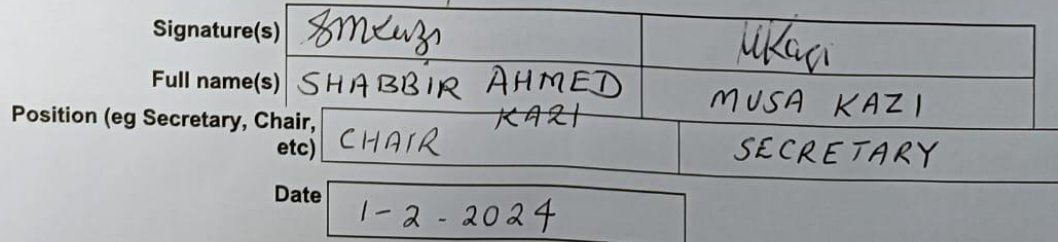 Signature(s) MKazi
Full name(s) SHABBIR AHMED KAZI MUSA KAZI
Position (eg Secretary, Chair, etc) CHAIR SECRETARY
Date 1-2-2024